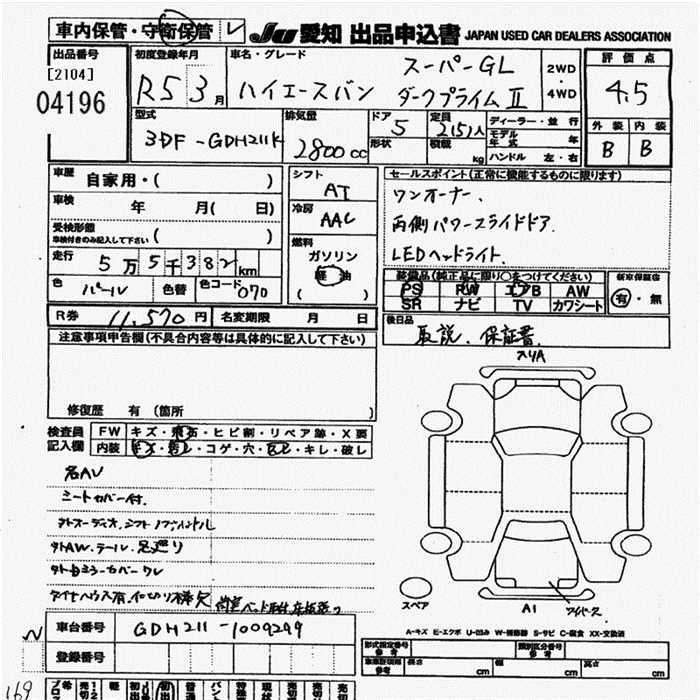 車内保管・守衛保管 レ JU 愛知 出品申込書 JAPAN USED CAR DEALERS ASSOCIATION
出品番号 初度登録年月 車名・グレード スーパーGL 2WD・4WD 評価点
[2104]
04196 R5 3月 ハイエースバン ダークプライムⅡ 4.5
型式 排気量 ドア 5 定員 2(5)人 ディーラー・並行 外装 内装
3DF-GDH211K 2800cc 形状 積載 kg モデル年式 年 B B
ハンドル 左・右
車歴 自家用・( ) シフト AT セールスポイント(正常に機能するものに限ります)
車検 年 月( 日) 冷房 AAC ワンオーナー.
受検形態 両側パワースライドドア.
車検付きのみ記入して下さい ( ) 燃料 LEDヘッドライト.
走行 5万5千382km ガソリン
軽油
色 パール 色替 色コード 070 ( )
装備品(純正品に限り○をつけてください) 新車保証書
PS PW エアB AW 有・無
SR ナビ TV カワシート
R券 11,570円 名変期限 月 日 後日品
取説. 保証書.
注意事項申告欄(不具合内容等は具体的に記入して下さい)
修復歴 有(箇所 )
検査員記入欄 FW キズ・飛石・ヒビ割・リペア跡・X要
内装 キズ・汚レ・コゲ・穴・ キレ・破レ
社外AV
シートカバー付.
タイヤハウス
車台番号 GDH211-1009299
登録番号
スペア
A1
ワイパース
A-キズ E-エクボ U-凹み W-補修跡 S-サビ C-腐食 XX-交換済
形式指定番号 参考 類別区分番号 参考
車庫証明用 参考 長さ cm 幅 cm 高さ cm
169